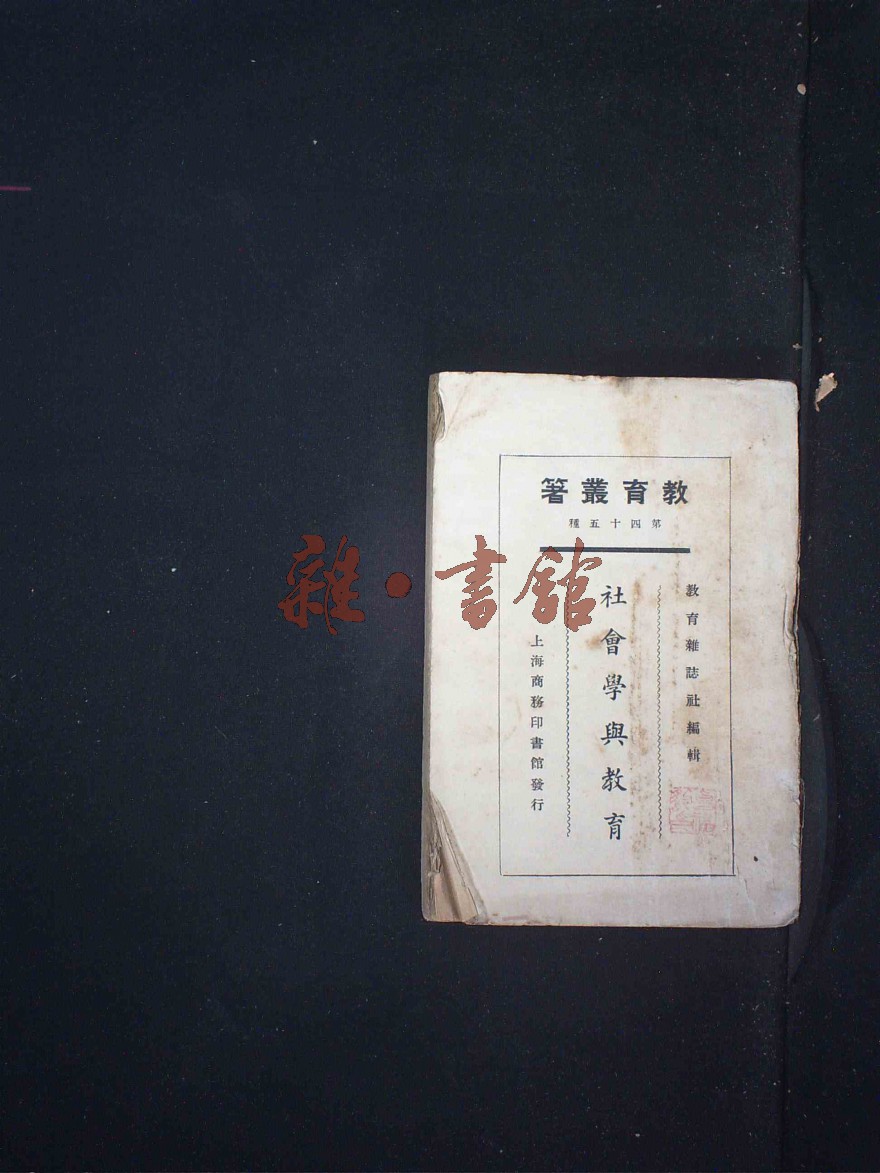 教育叢著
第四十五種
教育雜誌社編輯
社會學與教育
上海商務印書館發行
雜·書館